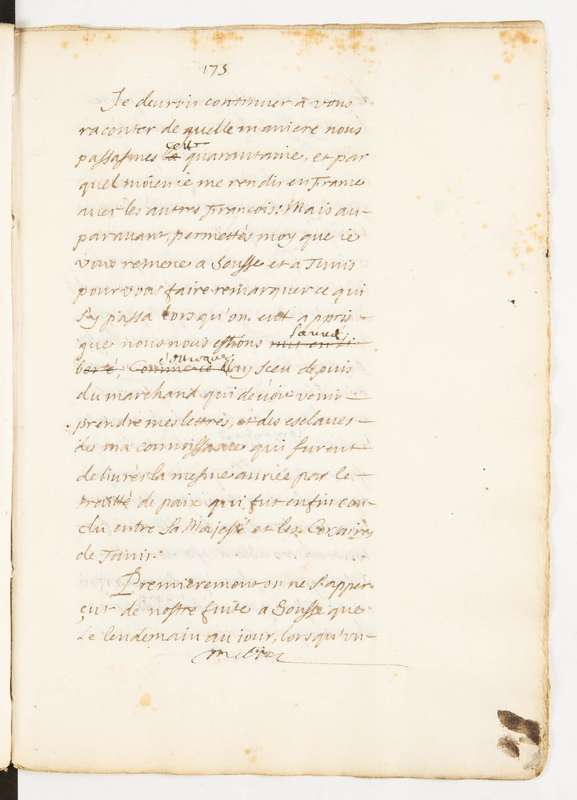 175
Je deuroir continuer a vous
raconter de quelle maniere nous
passasmes la cette quarantaine, et par
quel moien ie me rendis en France
auec les autres François: Mais au-
parauant, permettés moy que ie
vous remene a Sousse et a Tunis
pour vous faire remarquer ce qui
s'y passa lorsqu'on eut apris
que nous nous estions mis en li- sauués
berté, comme ie l'ay sceu depuis
du marchand qui deuoit venir
prendre mes lettres, et des esclaues
de ma connoissance qui furent
deliurés la mesme année par le
traitté de paix qui fut enfin con-
clu entre Sa Majesté et les Corsaires
de Tunis.
Premierement on ne s'apper-
çut de nostre fuite a Sousse que
le lendemain au iour, lorsqu'vn